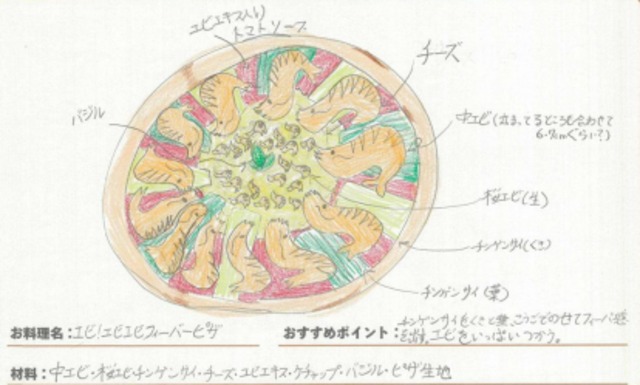 エビエキス入り
トマトソース
チーズ
バジル
中エビ(丸まってるところも合わせて
6-7cmぐらい?)
桜エビ(生)
チンゲンサイ(くき)
チンゲンサイ(葉)
お料理名:エビ!エビエビフィーバーピザ
おすすめポイント:チンゲンサイをくきと葉、こうごでのせてフィーバー感
を出す。エビをいっぱいつかう。
材料:中エビ・桜エビ・チンゲンサイ・チーズ・エビエキス・ケチャップ・バジル・ピザ生地